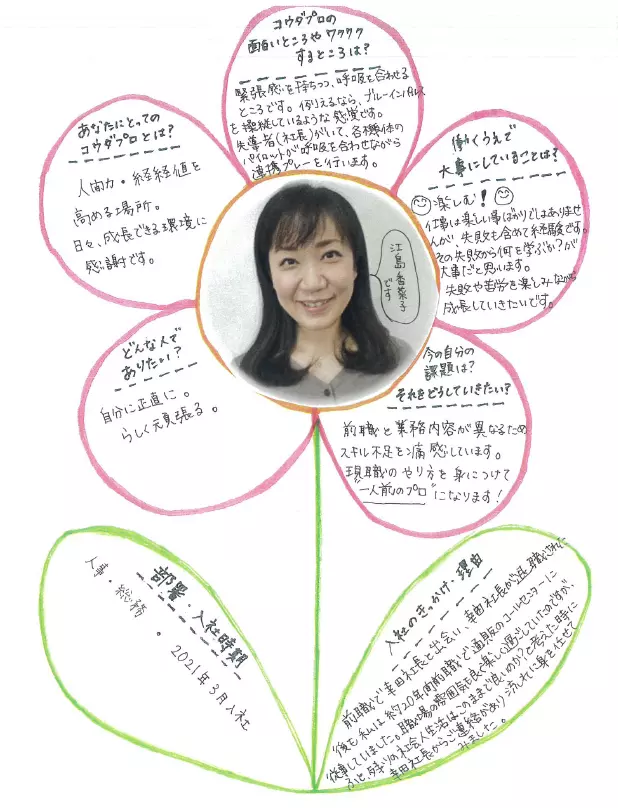 コウダプロの
面白いところやワクワク
するところは?
緊張感を持ちつつ、呼吸を合わせる
ところです。例えるなら、ブルーインパルス
を操縦しているような感覚です。
先導者(社長)がいて、各機体の
パイロットが呼吸を合わせながら
連携プレーを行います。
あなたにとっての
コウダプロとは?
人間力・経経値を
高める場所。
日々、成長できる環境に
感謝です。
働くうえで
大事にしていることは?
楽しむ!
仕事は楽しい事ばかりではありませ
んが、失敗も含めて経験です。
その失敗から何を学ぶか?が
大事だと思います。
失敗や苦労を楽しみながら
成長していきたいです。
江島香菜子
です
どんな人で
ありたい?
自分に正直に。
らしく元気張る。
今の自分の
課題は?
それをどうしていきたい?
前職と業務内容が異なるため
スキル不足を痛感しています。
現職のやり方を身につけて
"一人前のプロ"になります!
部署・入社時期
人事・総務。2021年3月入社
入社のきっかけ・理由
前職で幸田社長と出会い、幸田社長が退職された
後も私は約20年間前職で通販のコールセンターに
従事していました。職場の雰囲気も良く楽しく過ごしていたのですが、
ふと、残りの社会人生活はこのままで良いのか?と考えた時に
幸田社長からご連絡があり流れに身を任せて
みました。